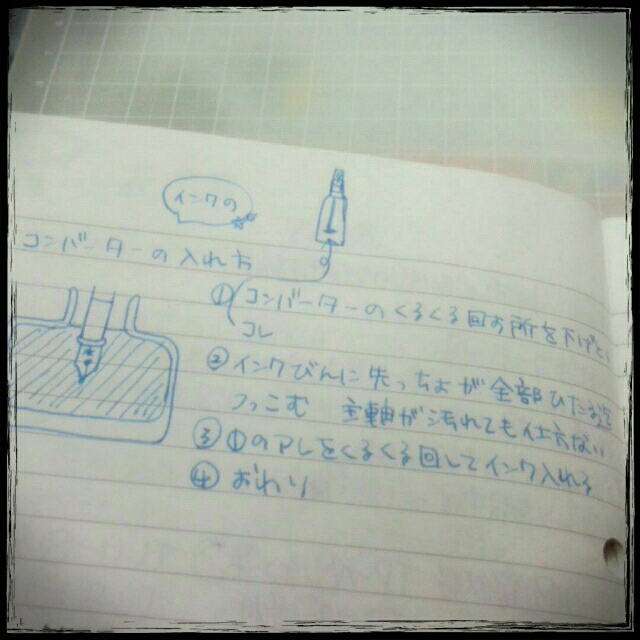 インクの
コンバーターの入れ方
① コンバーターのくるくる回す所を下げと
コレ
② インクびんに先っちょが全部ひたる迄
つっこむ 主軸が汚れても仕方ない
③ ①のアレをくるくる回してインク入れる
④ おわり